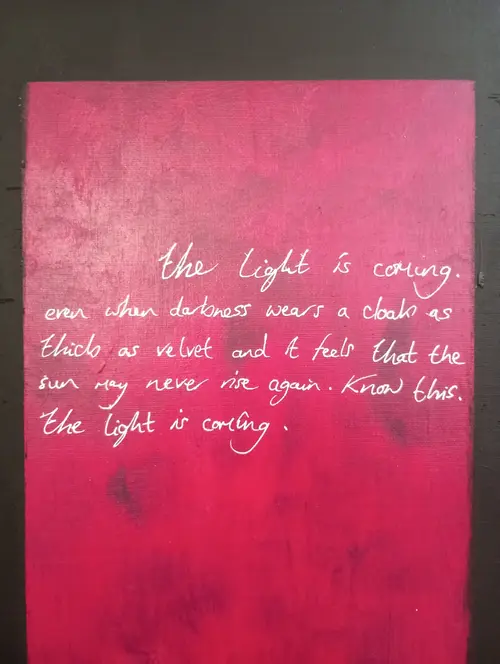 the light is coming.
even when darkness wears a cloak as
thick as velvet and it feels that the
sun may never rise again. Know this.
the light is coming.